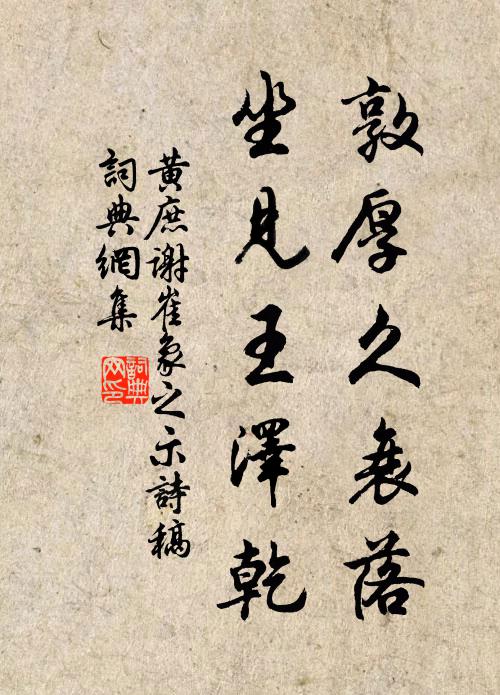 敦厚久衰落
坐見王澤乾
黃庶謝崔象之示詩稿
詞典網集
詞典網印